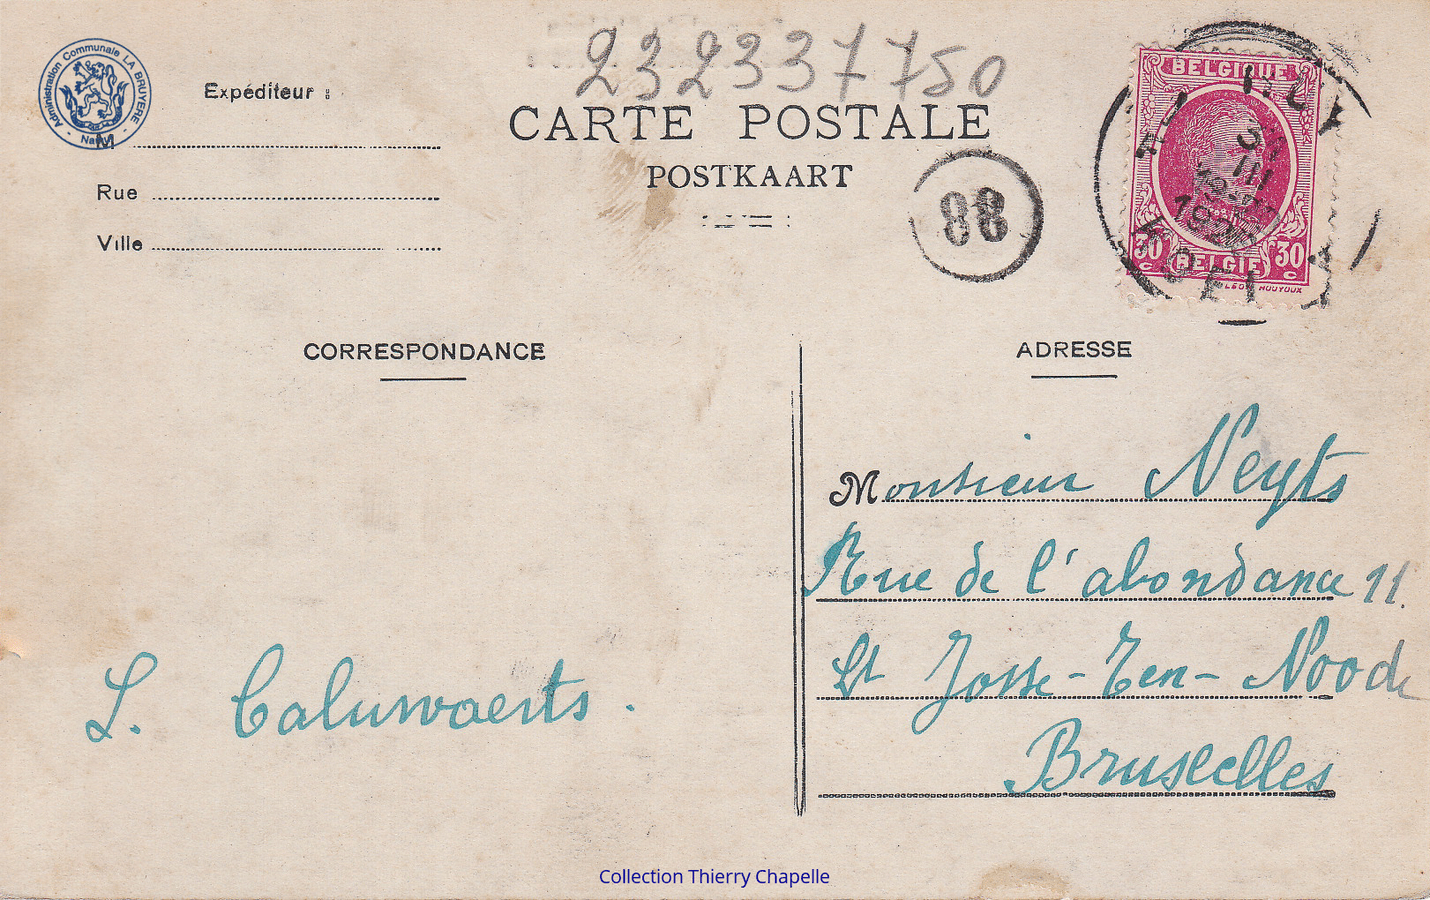 232337750
Administration Communale LA BRUYERE - Namur -
Expéditeur :
CARTE POSTALE
POSTKAART
M
Rue
Ville
88
BELGIQUE
31
III
30 c
BELGIE
30 c
HOUYOUX
CORRESPONDANCE
ADRESSE
Monsieur Neyts
Rue de l'abondance 11.
St Josse-Ten-Noode
Bruxelles
L. Caluwaerts.
Collection Thierry Chapelle